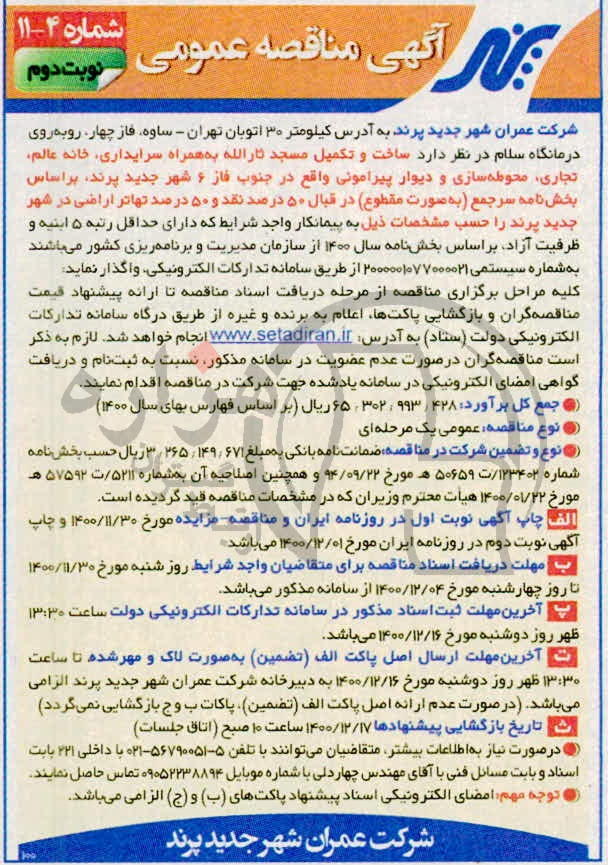 شماره ۴-۱۱
نوبت دوم
آگهی مناقصه عمومی
پرند
شرکت عمران شهر جدید پرند، به آدرس کیلومتر ۳۰ اتوبان تهران - ساوه، فاز چهار، روبه‌روی
درمانگاه سلام در نظر دارد ساخت و تکمیل مسجد ثارالله به‌همراه سرایداری، خانه عالم،
تجاری، محوطه‌سازی و دیوار پیرامونی واقع در جنوب فاز ۶ شهر جدید پرند، براساس
بخش‌نامه سرجمع (به‌صورت مقطوع) در قبال ۵۰ درصد نقد و ۵۰ درصد تهاتر اراضی در شهر
جدید پرند را حسب مشخصات ذیل به پیمانکار واجد شرایط که دارای حداقل رتبه ۵ ابنیه و
ظرفیت آزاد، براساس بخش‌نامه سال ۱۴۰۰ از سازمان مدیریت و برنامه‌ریزی کشور می‌باشند
به‌شماره سیستمی ۲۰۰۰۰۰۱۰۷۷۰۰۰۰۲۱ از طریق سامانه تدارکات الکترونیکی، واگذار نماید:
کلیه مراحل برگزاری مناقصه از مرحله دریافت اسناد مناقصه تا ارائه پیشنهاد قیمت
مناقصه‌گران و بازگشایی پاکت‌ها، اعلام به برنده و غیره از طریق درگاه سامانه تدارکات
الکترونیکی دولت (ستاد) به آدرس: www.setadiran.ir انجام خواهد شد. لازم به ذکر
است مناقصه‌گران درصورت عدم عضویت در سامانه مذکور، نسبت به ثبت‌نام و دریافت
گواهی امضای الکترونیکی در سامانه یادشده جهت شرکت در مناقصه اقدام نمایند.
جمع کل برآورد: ۶۵,۳۰۲,۹۹۳,۴۲۸ ریال (بر اساس فهارس بهای سال ۱۴۰۰)
نوع مناقصه: عمومی یک مرحله‌ای
نوع و تضمین شرکت در مناقصه: ضمانت‌نامه بانکی به‌مبلغ ۳,۲۶۵,۱۴۹,۶۷۱ ریال حسب بخش‌نامه
شماره ۱۲۳۴۰۲/ت ۵۰۶۵۹ هـ مورخ ۹۴/۰۹/۲۲ و همچنین اصلاحیه آن به‌شماره ۵۲۱۱/ت ۵۷۵۹۲ هـ
مورخ ۱۴۰۰/۰۱/۲۲ هیأت محترم وزیران که در مشخصات مناقصه قید گردیده است.
الف چاپ آگهی نوبت اول در روزنامه ایران و مناقصه-مزایده مورخ ۱۴۰۰/۱۱/۳۰ و چاپ
آگهی نوبت دوم در روزنامه ایران مورخ ۱۴۰۰/۱۲/۰۱ می‌باشد.
ب مهلت دریافت اسناد مناقصه برای متقاضیان واجد شرایط، روز شنبه مورخ ۱۴۰۰/۱۱/۳۰
تا روز چهارشنبه مورخ ۱۴۰۰/۱۲/۰۴ از سامانه مذکور می‌باشد.
پ آخرین مهلت ثبت اسناد مذکور در سامانه تدارکات الکترونیکی دولت ساعت ۱۳:۳۰
ظهر روز دوشنبه مورخ ۱۴۰۰/۱۲/۱۶ می‌باشد.
ت آخرین مهلت ارسال اصل پاکت الف (تضمین) به‌صورت لاک و مهرشده، تا ساعت
۱۳:۳۰ ظهر روز دوشنبه مورخ ۱۴۰۰/۱۲/۱۶ به دبیرخانه شرکت عمران شهر جدید پرند الزامی
می‌باشد. (درصورت عدم ارائه اصل پاکت الف (تضمین)، پاکات ب و ج بازگشایی نمی‌گردد)
ث تاریخ بازگشایی پیشنهادها ۱۴۰۰/۱۲/۱۷ ساعت ۱۰ صبح (اتاق جلسات)
درصورت نیاز به‌اطلاعات بیشتر، متقاضیان می‌توانند با تلفن ۵-۵۶۷۹۰۰۵۱-۰۲۱ با داخلی ۲۲۱ بابت
اسناد و بابت مسائل فنی با آقای مهندس چهاردلی با شماره موبایل ۰۹۰۵۲۲۳۸۸۹۴ تماس حاصل نمایند.
توجه مهم: امضای الکترونیکی اسناد پیشنهاد پاکت‌های (ب) و (ج) الزامی می‌باشد.
شرکت عمران شهر جدید پرند
هزاره